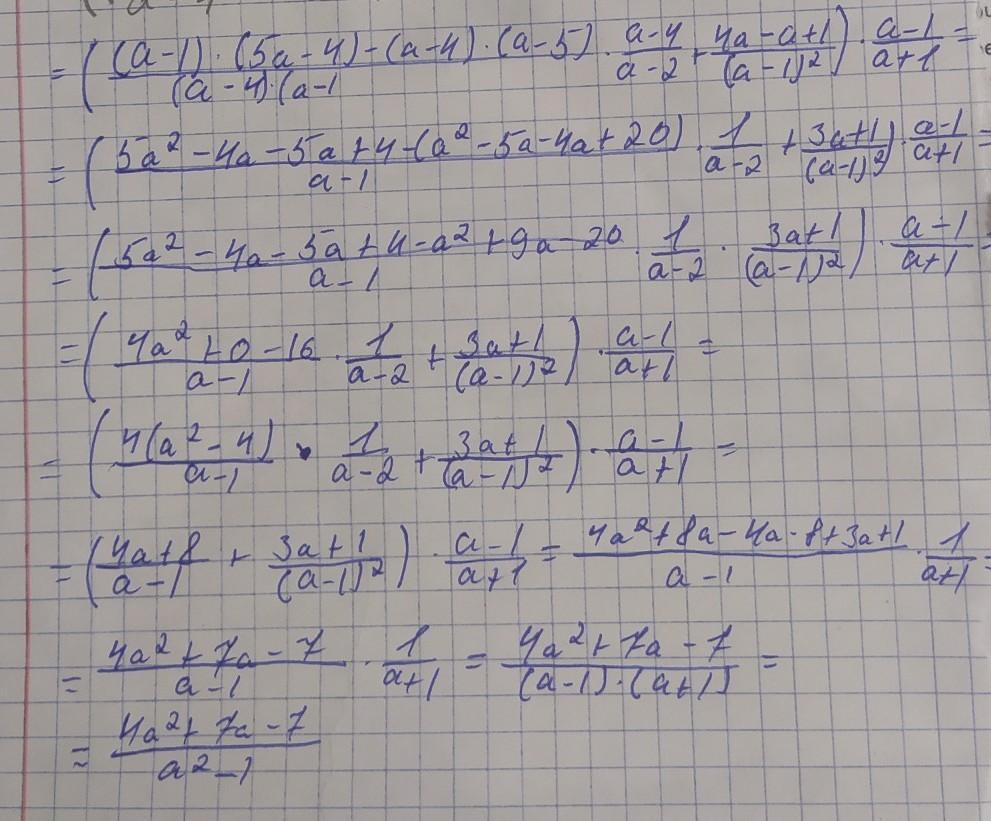 = ((a-1)·(5a-4)-(a-4)·(a-5) / (a-4)·(a-1 · a-4 / a-2 + 4a-a+1 / (a-1)²) · a-1 / a+1 =
= (5a²-4a-5a+4-(a²-5a-4a+20) / a-1 · 1 / a-2 + 3a+1 / (a-1)²) · a-1 / a+1 =
= (5a²-4a-5a+4-a²+9a-20 / a-1 · 1 / a-2 · 3a+1 / (a-1)²) · a-1 / a+1 =
= (4a²+0-16 / a-1 · 1 / a-2 + 3a+1 / (a-1)²) · a-1 / a+1 =
= (4(a²-4) / a-1 · 1 / a-2 + 3a+1 / (a-1)²) · a-1 / a+1 =
= (4a+8 / a-1 + 3a+1 / (a-1)²) · a-1 / a+1 = 4a²+8a-4a-8+3a+1 / a-1 · 1 / a+1 =
= 4a²+7a-7 / a-1 · 1 / a+1 = 4a²+7a-7 / (a-1)·(a+1) =
= 4a²+7a-7 / a²-1